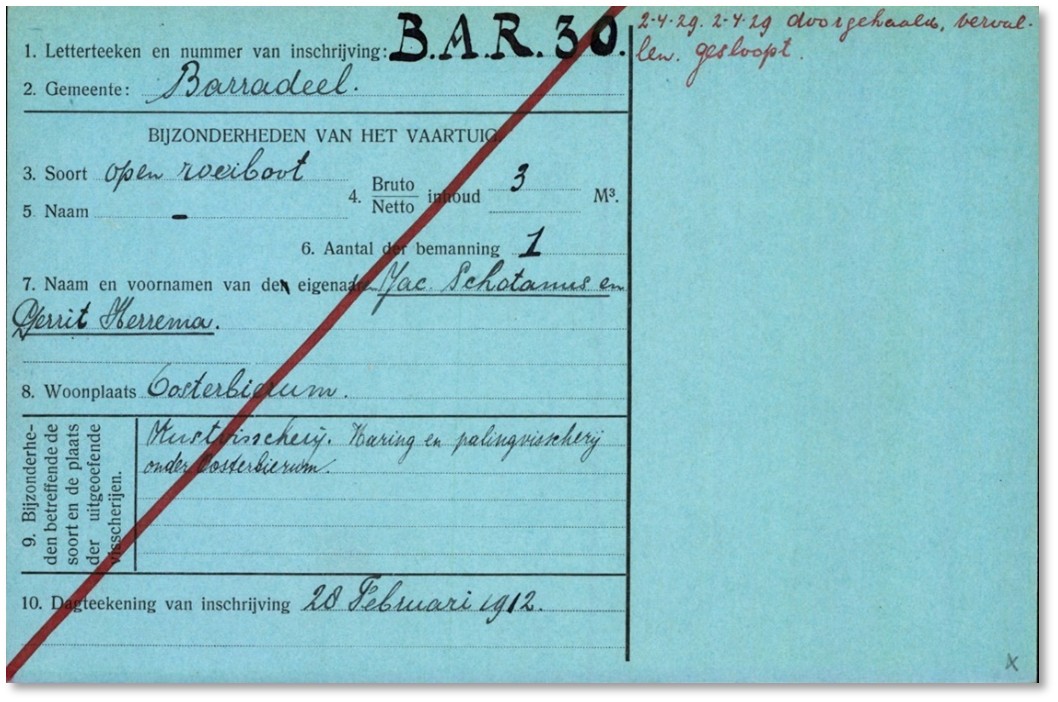 1. Letterteeken en nummer van inschrijving: B.A.R. 30.
2. Gemeente: Barradeel.
BIJZONDERHEDEN VAN HET VAARTUIG.
3. Soort open roeiboot
4. Bruto
Netto inhoud 3 M³.
5 Naam –
6. Aantal der bemanning 1
7. Naam en voornamen van den eigenaar Jac. Schotanus en
Gerrit Herrema.
8. Woonplaats Oosterbierum.
9. Bijzonderhe-
den betreffende de
soort en de plaats
der uitgeoefende
visscherijen.
Kustvisscherij. Haring en palingvisscherij
onder Oosterbierum.
10. Dagteekening van inschrijving 28 Februari 1912.
2-4-29. 2-4-29 doorgehaald, verval-
len. gesloopt.
x